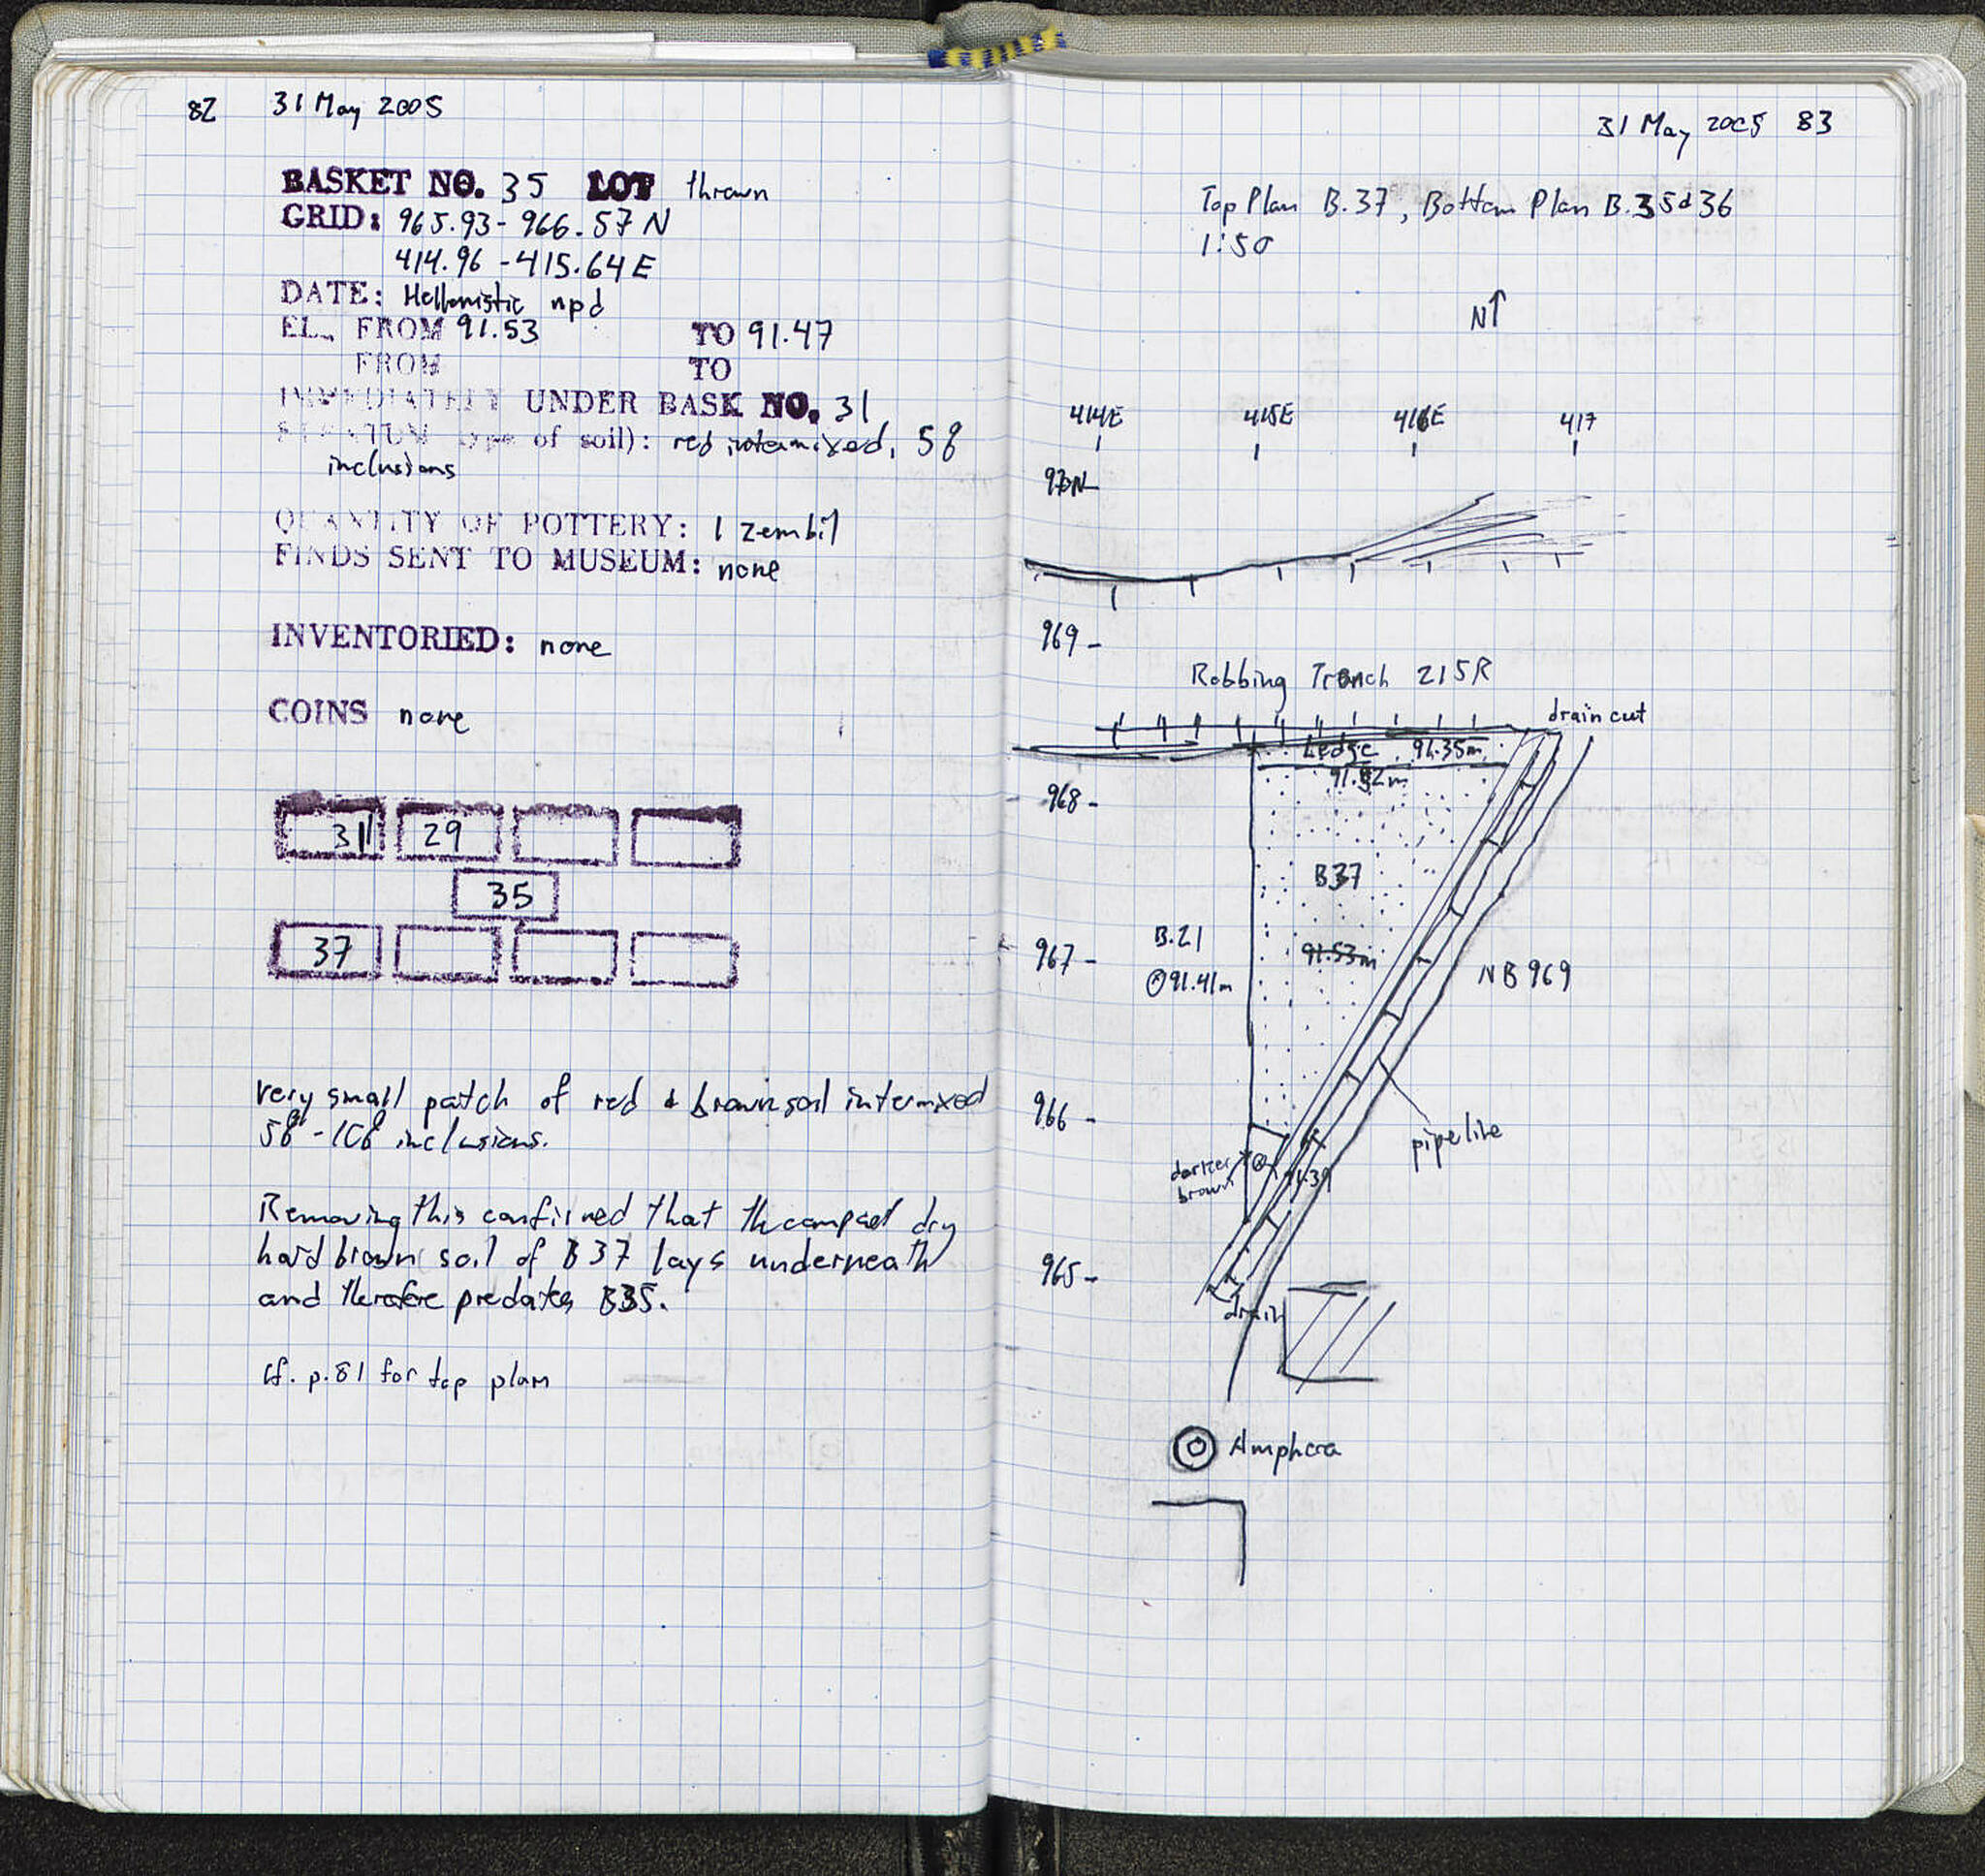 82 31 May 2005
BASKET NO. 35 LOT thrown
GRID: 965.93 - 966.57 N
414.96 - 415.64 E
DATE: Hellenistic npd
EL., FROM 91.53 TO 91.47
FROM TO
IMMEDIATELY UNDER BASK NO. 31
STRATUM (type of soil): red intermixed, 58
inclusions
QUANTITY OF POTTERY: 1 zembil
FINDS SENT TO MUSEUM: none
INVENTORIED: none
COINS none
31 29
35
37
very small patch of red & brown soil intermixed
inclusions.
Removing this confirmed that the compact dry
hard brown soil of B37 lays underneath
and therefore predates B35.
Cf. p.81 for top plan
31 May 2005 83
Top Plan B.37, Bottom Plan B.35 & 36
1:50
N
414E 415E 416E 417
970N
969
Robbing Trench 215R
drain cut
Ledge 91.35m
968
B37
B.21
967
91.53m
91.41m
NB 969
966
pipeline
darker
brown
91.39
965
drain
Amphora